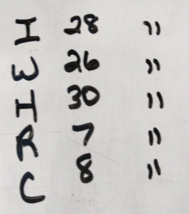 I 28 "
W 26 "
I 30 "
R 7 "
C 8 "